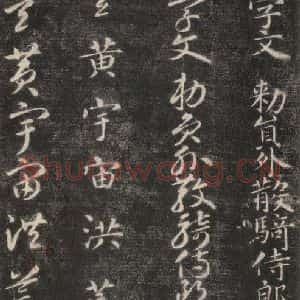 字文勅員外散騎侍郎
字文勅員外散騎侍郎
玄黃宇宙洪荒
玄黃宇宙洪荒
Shufawang.CN